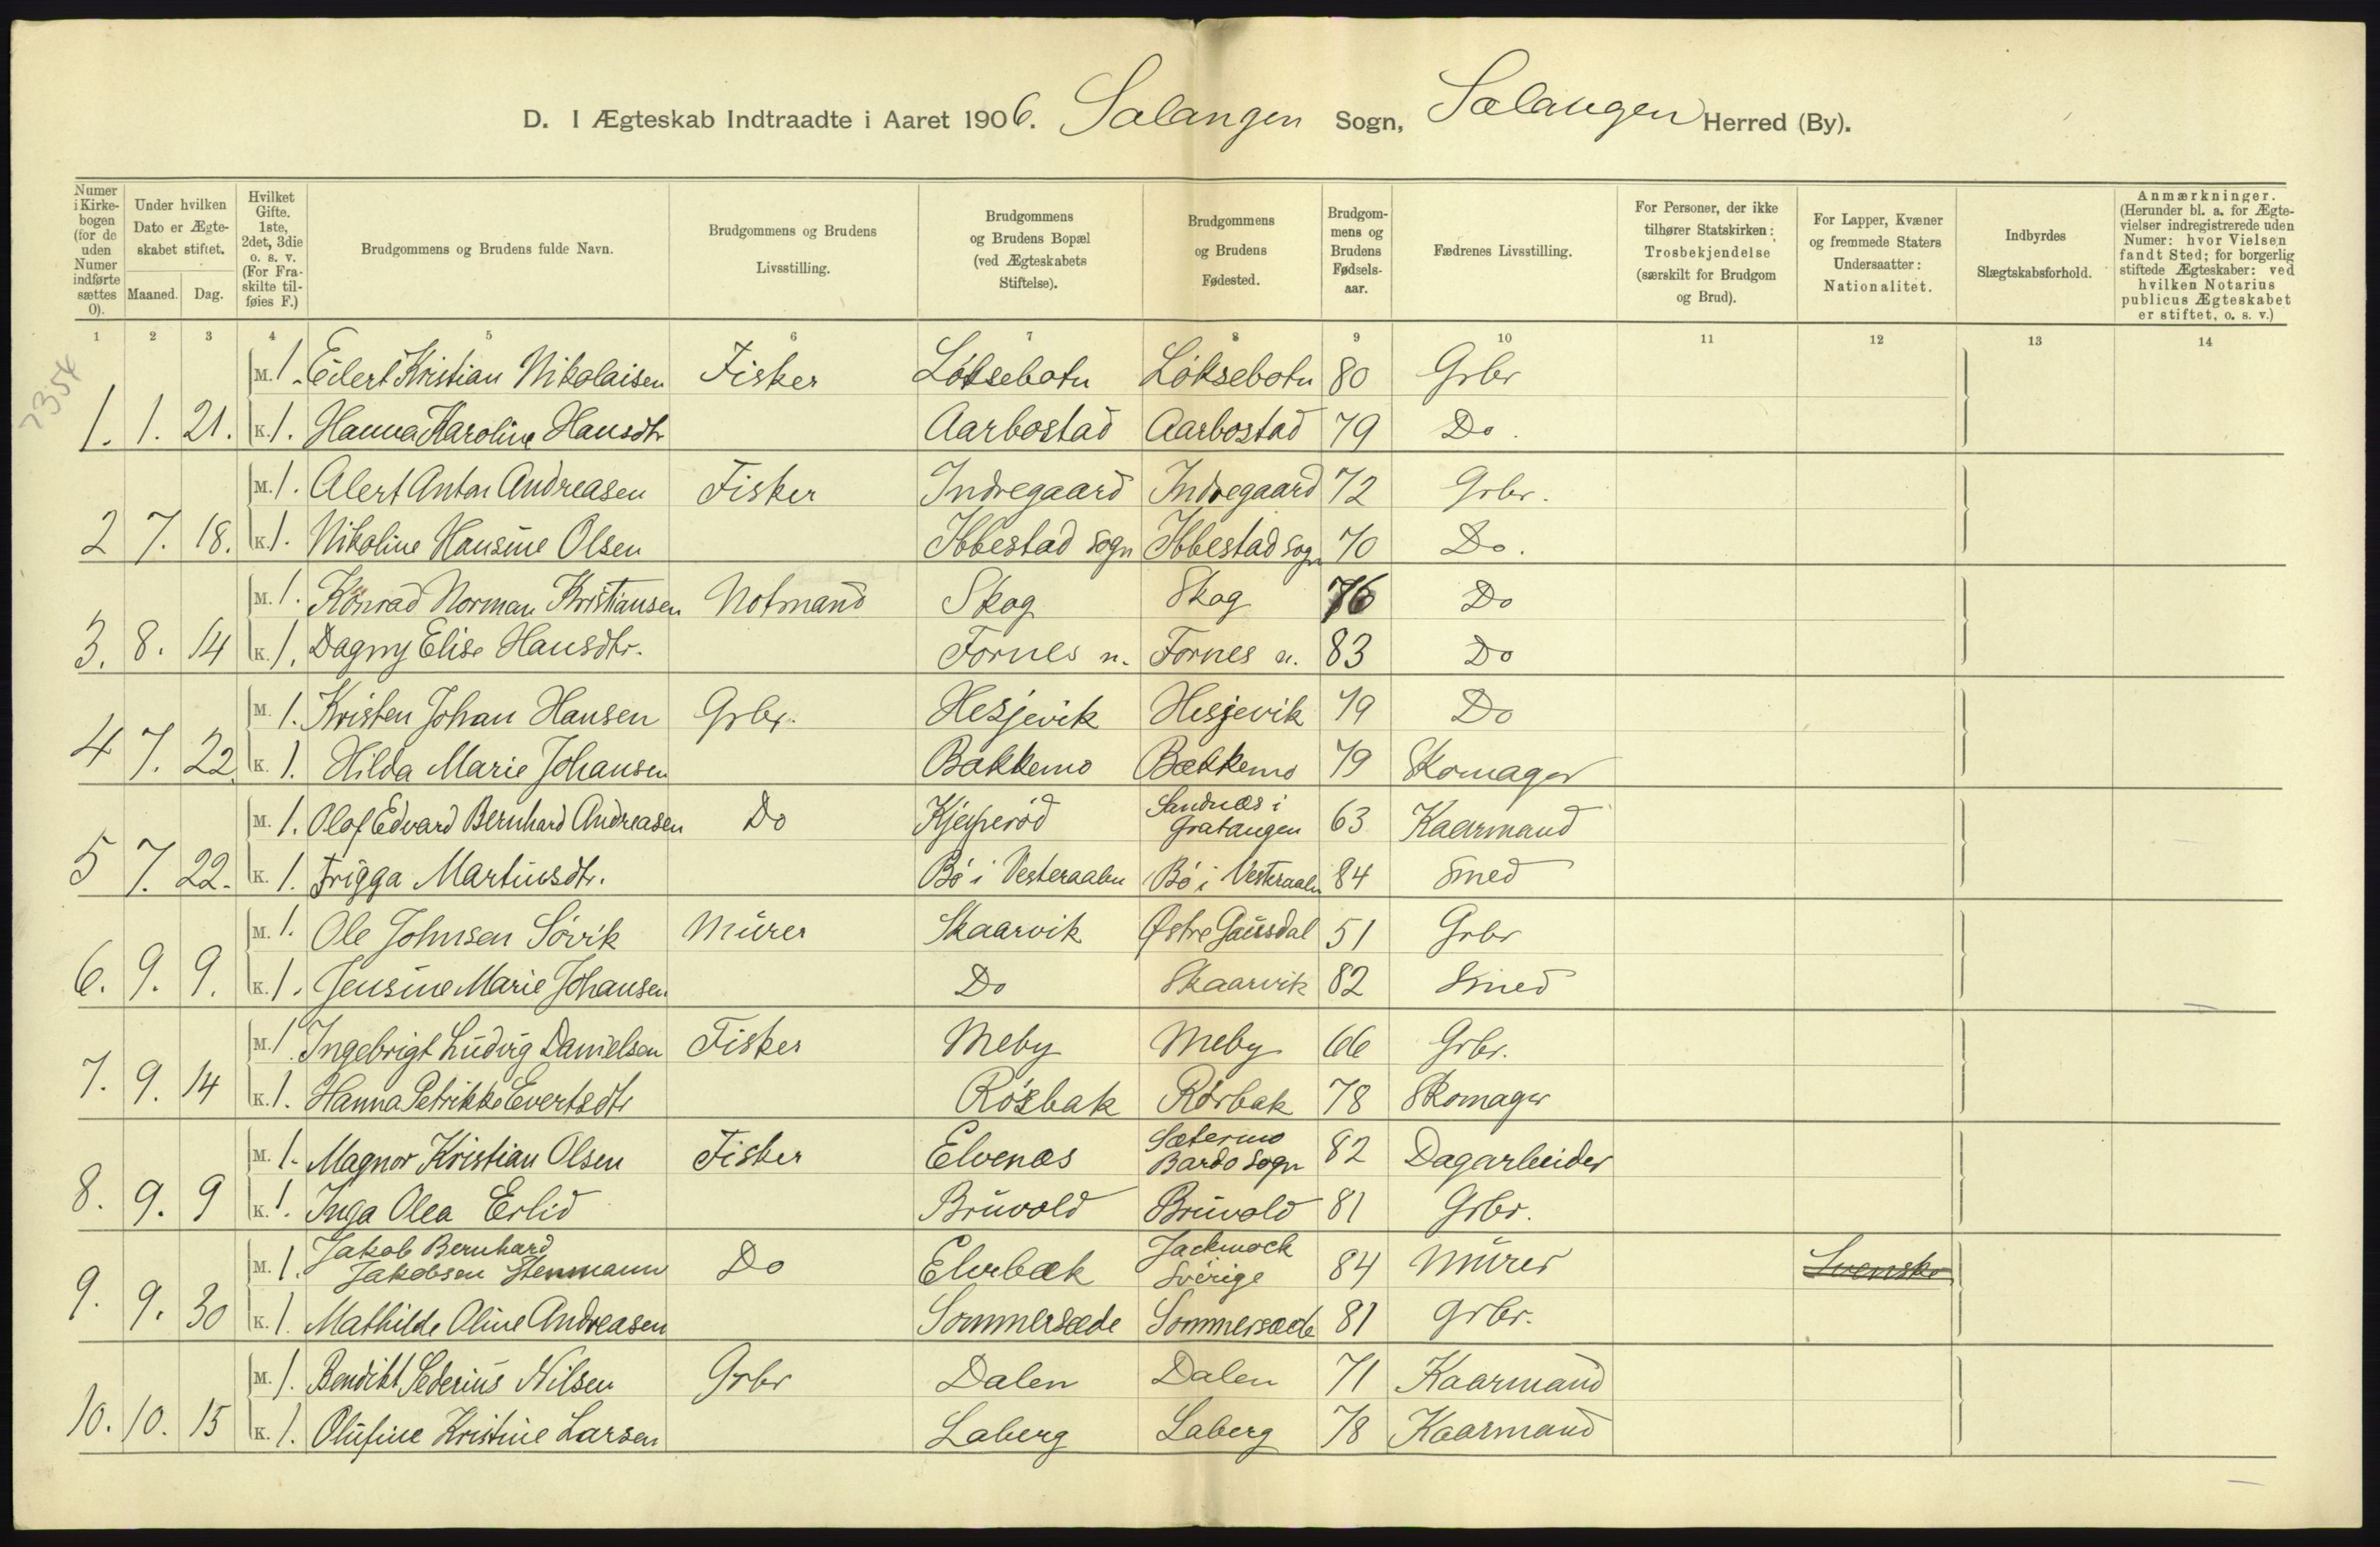 D. I Ægteskab Indtraadte i Aaret 1906. Salangen Sogn, Salangen Herred (By).
Numer i Kirke-bogen (for de uden Numer indførte sættes 0).
Under hvilken Dato er Ægte-skabet stiftet.
Maaned. Dag.
Hvilket Gifte. 1ste, 2det, 3die o. s. v. (For Fra-skilte til-føies F.)
Brudgommens og Brudens fulde Navn.
Brudgommens og Brudens Livsstilling.
Brudgommens og Brudens Bopæl (ved Ægteskabets Stiftelse).
Brudgommens og Brudens Fødested.
Brudgom-mens og Brudens Fødsels-aar.
Fædrenes Livsstilling.
For Personer, der ikke tilhører Statskirken: Trosbekjendelse (særskilt for Brudgom og Brud).
For Lapper, Kvæner og fremmede Staters Undersaatter: Nationalitet.
Indbyrdes Slægtskabsforhold.
Anmærkninger. (Herunder bl. a. for Ægte-vielser indregistrerede uden Numer: hvor Vielsen fandt Sted; for borgerlig stiftede Ægteskaber: ved hvilken Notarius publicus Ægteskabet er stiftet, o. s. v.)
1 2 3 4 5 6 7 8 9 10 11 12 13 14
2354
M. 1. Eilert Kristian Nikolaisen Fisker Löksebotn Löksebotn 80 Grbr
1. 1. 21. K. 1. Hanna Karoline Hansdtr Aarbostad Aarbostad 79 Do.
M. 1. Alert Anton Andreasen Fisker Indregaard Indregaard 72 Grbr.
2 7. 18. K. 1. Nikoline Hansine Olsen Ibbestad sogn Ibbestad sogn 70 Do.
M. 1. Konrad Norman Kristiansen Notmand Skog Skog 76 Do
3. 8. 14 K. 1. Dagny Elise Hansdtr. Fornes n. Fornes n. 83 Do
M. 1. Kristen Johan Hansen Grbr. Hesjevik Hesjevik 79 Do
4 7. 22. K. 1. Hilda Marie Johansen Bakkemo Bakkemo 79 Skomager
M. 1. Olof Edvard Bernhard Andreasen Do Kjeiperöd Sandnæs i Gratangen 63 Kaarmand
5 7. 22. K. 1. Frigga Martinsdtr. Bö i Vesteraalen Bö i Vesteraalen 84 Smed
M. 1. Ole Johnsen Sövik Murer Skaarvik Østre Gausdal 51 Grbr
6. 9. 9. K. 1. Jensine Marie Johansen Do Skaarvik 82 Smed
M. 1. Ingebrigt Ludvig Danielsen Fisker Meby Meby 66 Grbr.
7. 9. 14 K. 1. Hanna Petrikke Evertsdtr Rörbak Rörbak 78 Skomager
M. 1. Magnor Kristian Olsen Fisker Elvenæs Sætermo Bardo sogn 82 Dagarbeider
8. 9. 9 K. 1. Inga Olea Erlid Bruvold Bruvold 81 Grbr.
M. 1. Jakob Bernhard Jakobsen Stenmann Do Elvebæk Jackmock Sverige 84 Murer Svenske
9. 9. 30 K. 1. Mathilde Oline Andreasen Sommersæde Sommersæde 81 Grbr.
M. 1. Bendikt Sederius Nilsen Grbr Dalen Dalen 71 Kaarmand
10. 10. 15 K. 1. Olufine Kristine Larsen Laberg Laberg 78 Kaarmand